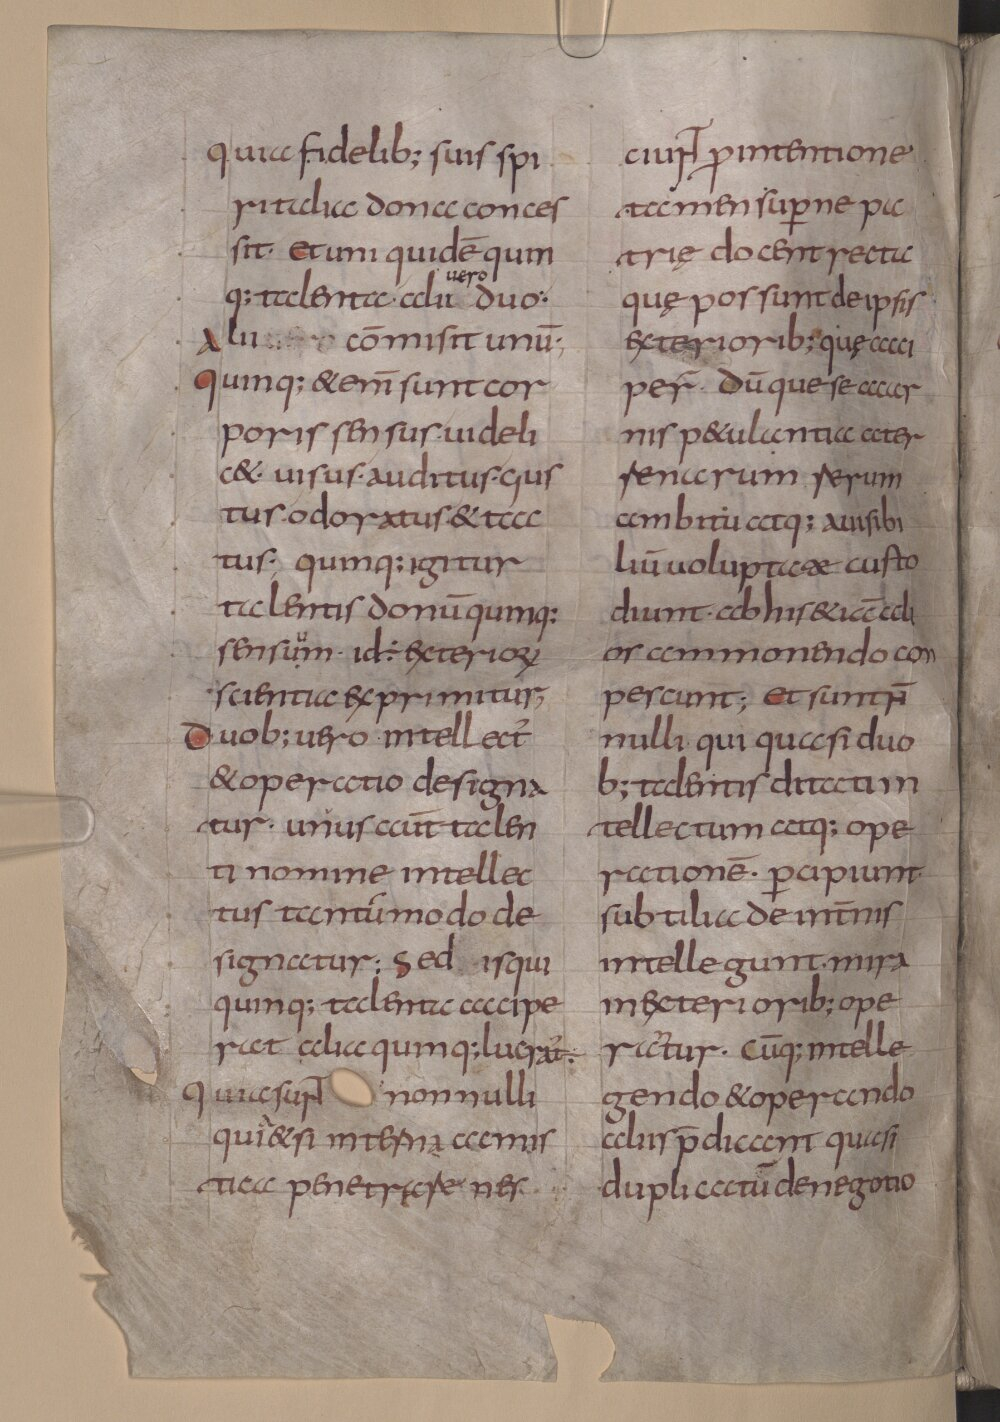 quia fidelib; suis spi
ritalia dona conces
sit· et uni quidē quin
q; talenta· alii uero duo·
Alii cōmisit unū·;
Quinq; &eni sunt cor
poris sensus· uideli
c& uisus· auditus· gus
tus· odoratus· & tac
tus· quinq; igitur
talentis donū quinq;
sensuum· id÷ exteriorū
scientia exprimitur;
Duob; uero intellect᾽
& operatio designa
tur· unius aūt talen
ti nomine intellec
tus tantūmodo de
signatur; Sed isqui
quinq; talenta accipe
rat alia quinq; lucrat᾽·
Quia sunt nonnulli
qui &si interna acmis
tica penetrare nes
ciunt p intentione
tamen supne pa
trię docent recta
quę possunt de ipsis
exteriorib; quę acci
per̄· Dū que se acar
nis p&ulantia ater
renarum rerum
ambitu atq; auisibi
liū uoluptate custo
diunt· ab his &iā ali
os ammonendo con
pescunt; Et sunt
nulli qui quasi duo
b; talentis ditati in
tellectum atq; ope
rationē· pcipiunt
subtilia de int̄nis
intellegunt· mira
in exteriorib; ope
rat᾽tur· Cūq; intelle
gendo & operando
aliis p̄dicant quasi
duplicatū denegotio